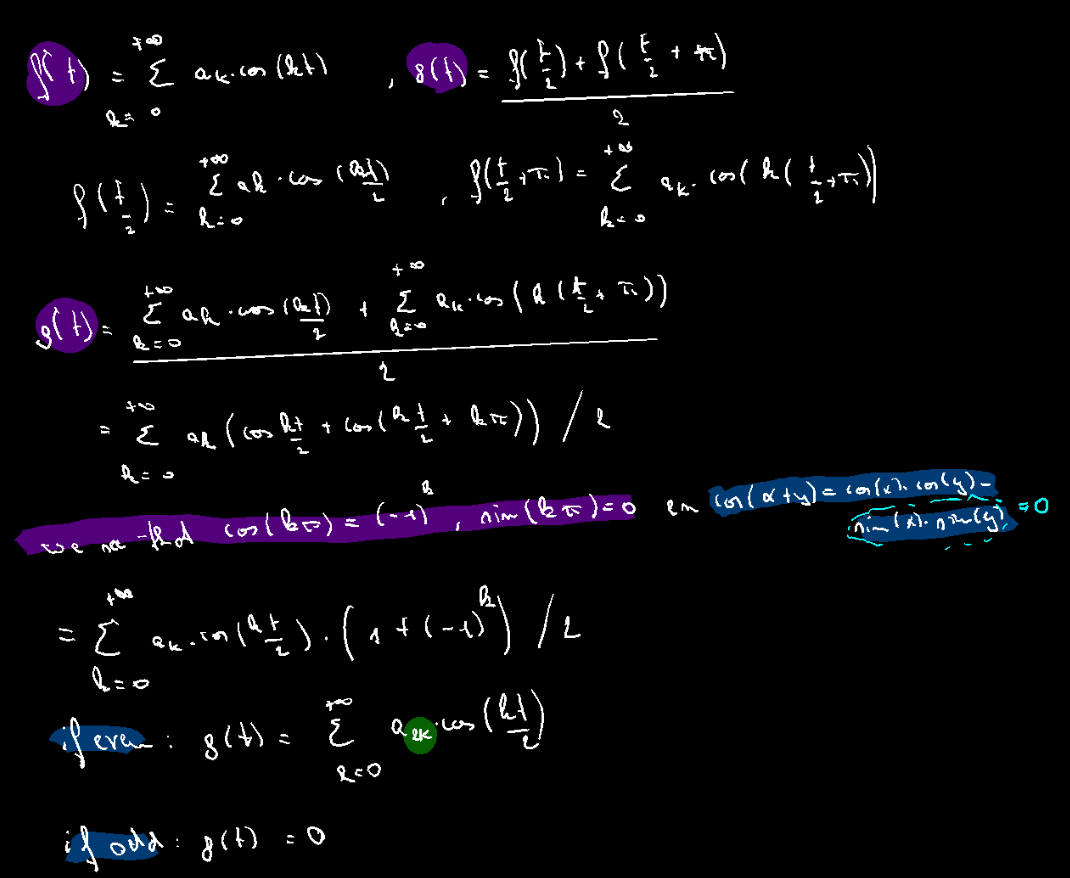 f(t) = Σ_{k=0}^{+∞} a_k·cos(kt) , g(t) = (f(t/2) + f(t/2 + π))/2
f(t/2) = Σ_{k=0}^{+∞} a_k·cos(kt/2) , f(t/2+π) = Σ_{k=0}^{+∞} a_k·cos(k(t/2+π))
g(t) = (Σ_{k=0}^{+∞} a_k·cos(kt/2) + Σ_{k=0}^{+∞} a_k·cos(k(t/2 + π)))/2
= Σ_{k=0}^{+∞} a_k(cos kt/2 + cos(k t/2 + kπ)) / 2
we that cos(kπ) = (-1)^k , sin(kπ)=0 en cos(x+y) = cos(x)·cos(y) -
sin(x)·sin(y) → 0
= Σ_{k=0}^{+∞} a_k·cos(k t/2)·(1+(-1)^k) / 2
if even : g(t) = Σ_{k=0}^{+∞} a_{2k}·cos(kt/2)
if odd : g(t) = 0